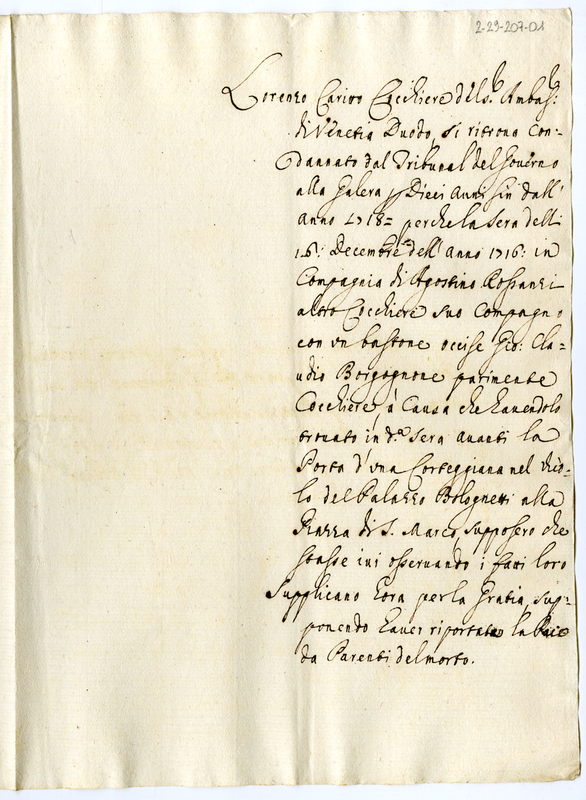 2-29-207-01
Lorenzo Carivo Cocchiere del S.r Ambas.r
di Venetia Duodo, si ritrova Con=
dannato dal Tribunal del Governo
alla Galera p Dieci anni sin dall'
anno 1718= perche la sera delli
16: Decembre dell' anno 1716: in
Compagnia di Agostino Rossanzi
altro Cocchiere suo Compagno
con un bastone occise Gio: Cla=
udio Borgognone parimente
Cocchiere, à Causa che havendolo
trovato in d.a sera avanti la
Porta d'una Corteggiana nel Vico=
lo del Palazzo Bolognetti alla
Piazza di S. Marco, supposero che
stasse ivi osservando i fatti loro
Supplicano hora per la Gratia, sup=
ponendo haver riportato la Pace
da Parenti del morto.